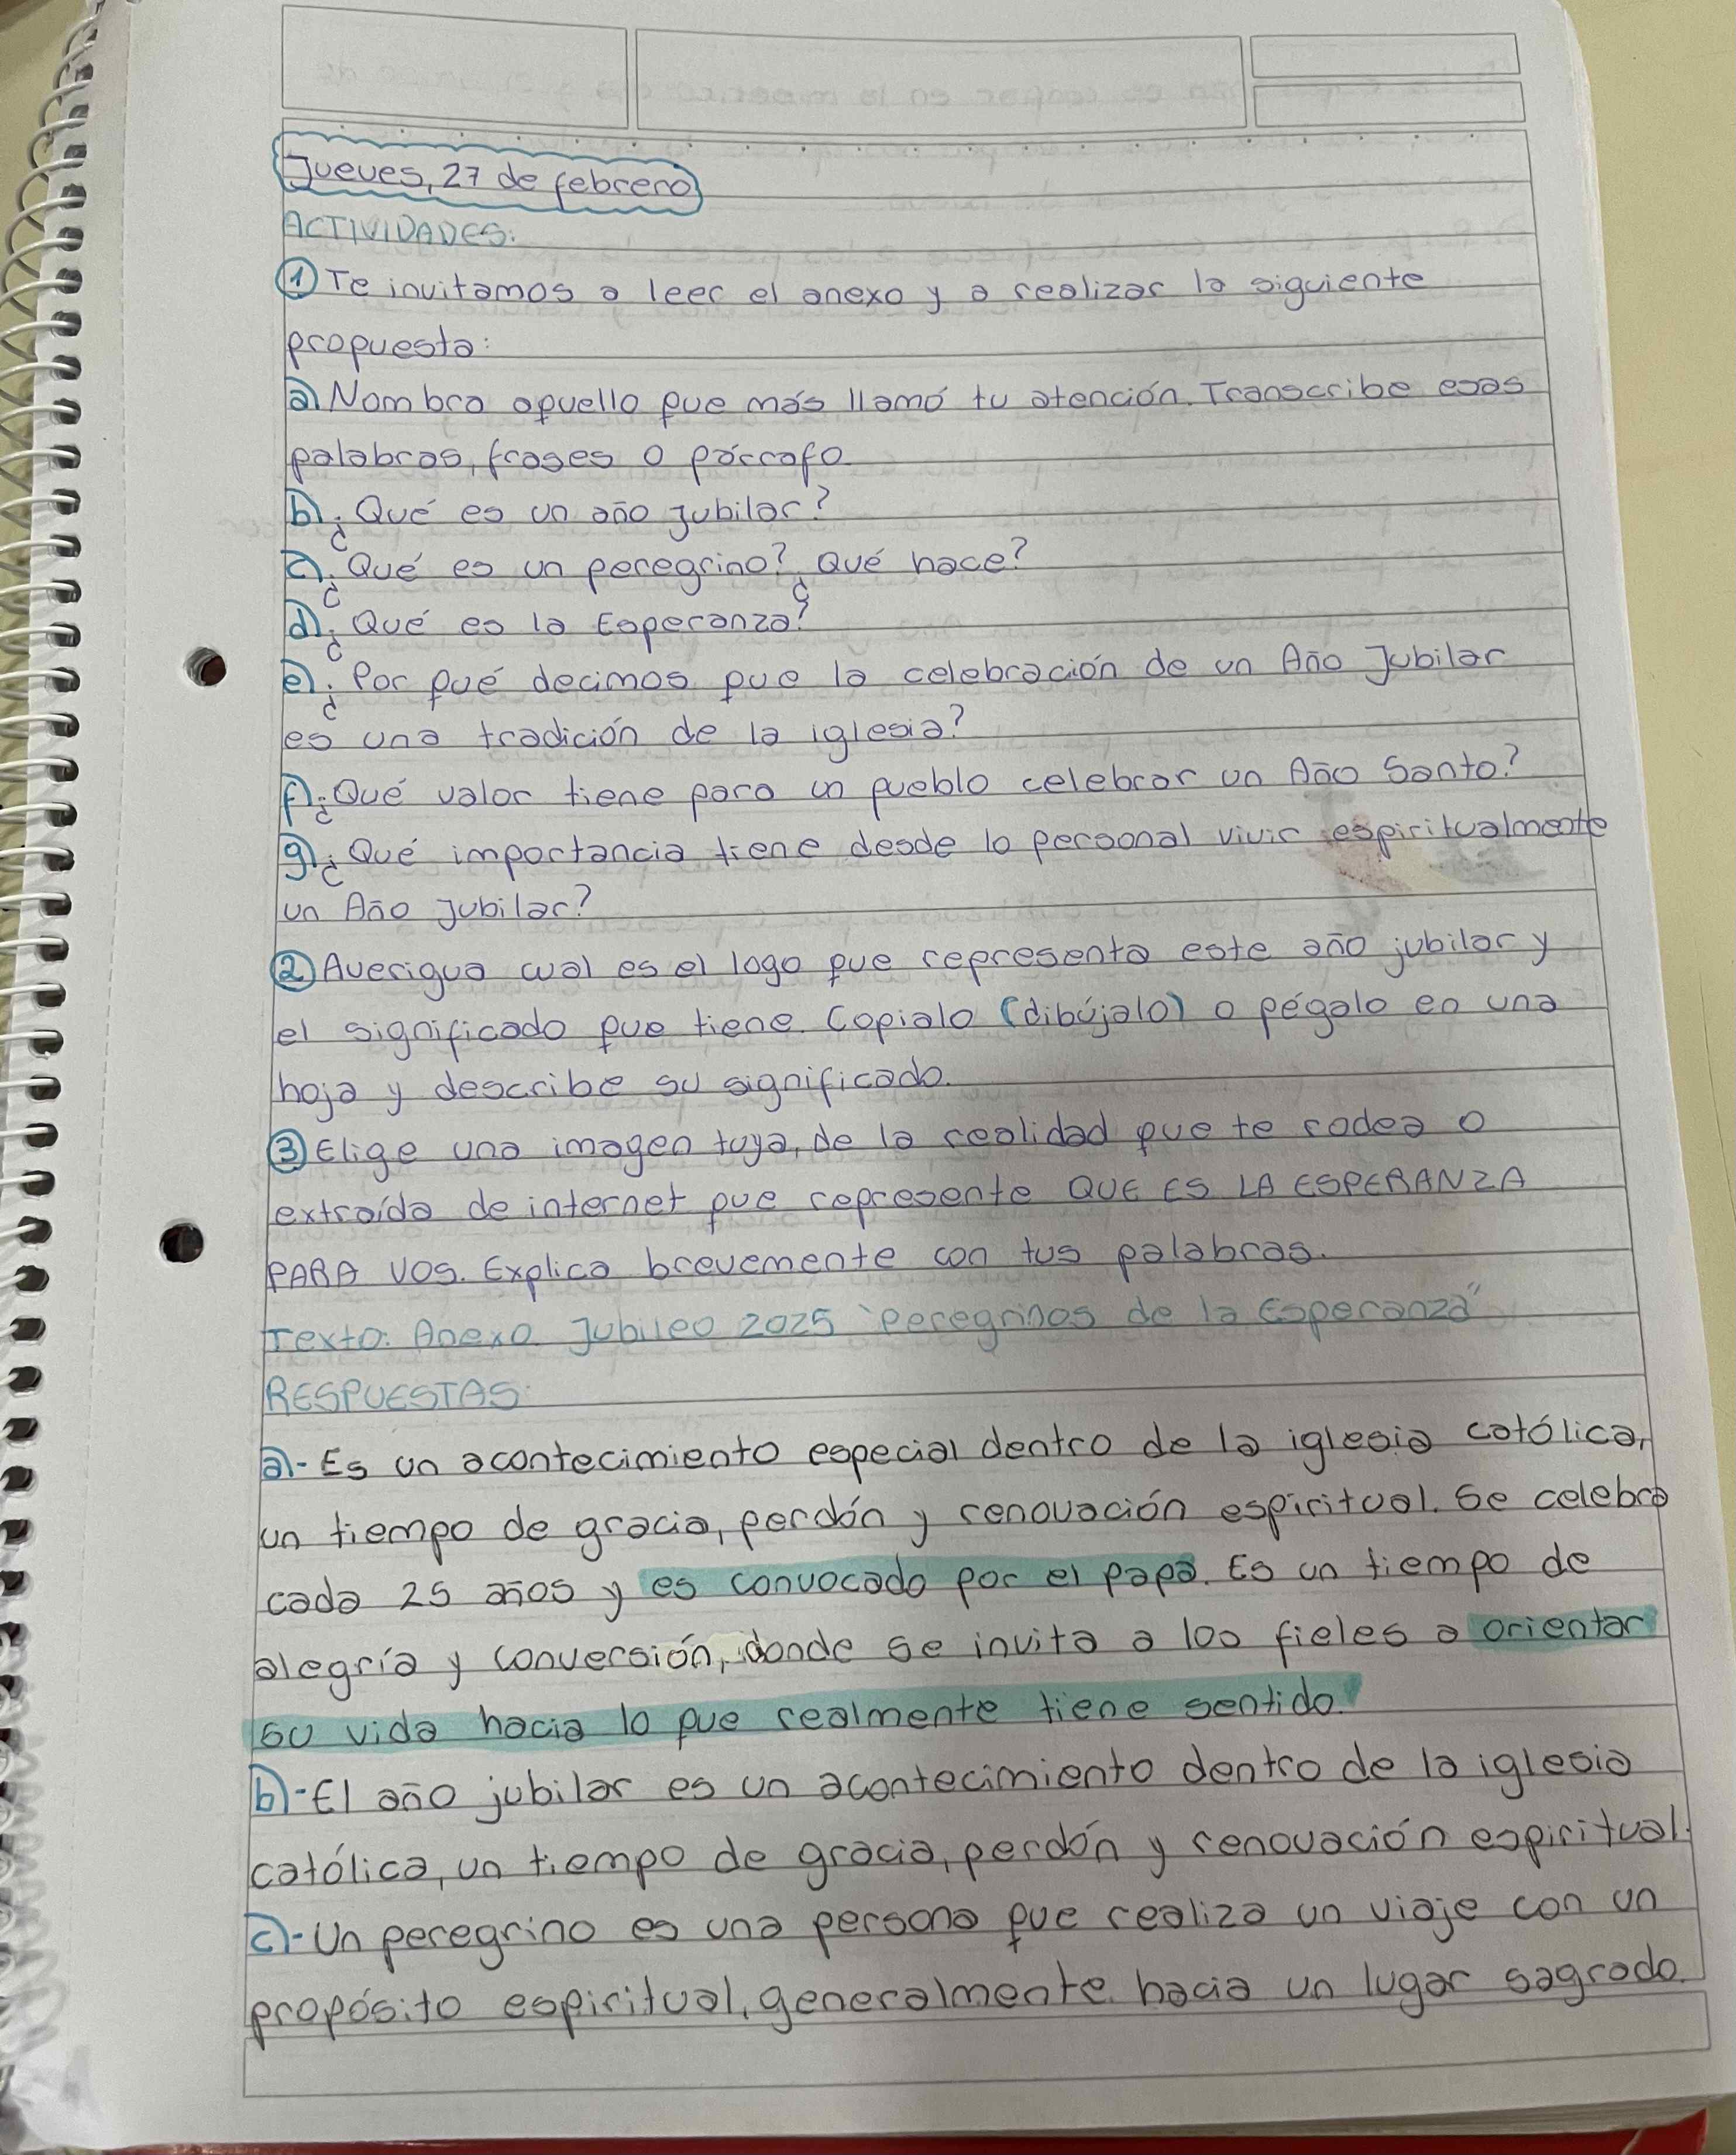 Jueves, 27 de febrero
ACTIVIDADES:
① Te invitamos a leer el anexo y a realizar la siguiente
propuesta:
a) Nombra aquello que más llamó tu atención. Transcribe esas
palabras, frases o párrafo.
b) ¿Qué es un año Jubilar?
c) ¿Qué es un peregrino? ¿Qué hace?
d) ¿Qué es la Esperanza?
e) ¿Por qué decimos que la celebración de un Año Jubilar
es una tradición de la iglesia?
f) ¿Qué valor tiene para un pueblo celebrar un Año Santo?
g) ¿Qué importancia tiene desde lo personal vivir espiritualmente
un Año Jubilar?
② Averigua cual es el logo que representa este año jubilar y
el significado que tiene. Copialo (dibújalo) o pégalo en una
hoja y describe su significado.
③ Elige una imagen tuya, de la realidad que te rodea o
extraída de internet que represente QUE ES LA ESPERANZA
PARA VOS. Explica brevemente con tus palabras.
Texto: Anexo Jubileo 2025 "Peregrinos de la Esperanza"
RESPUESTAS:
a)- Es un acontecimiento especial dentro de la iglesia católica,
un tiempo de gracia, perdón y renovación espiritual. Se celebra
cada 25 años y es convocado por el papa. Es un tiempo de
alegría y conversión, donde se invita a los fieles a orientar
su vida hacia lo que realmente tiene sentido.
b)- El año jubilar es un acontecimiento dentro de la iglesia
católica, un tiempo de gracia, perdón y renovación espiritual.
c)- Un peregrino es una persona que realiza un viaje con un
propósito espiritual, generalmente hacia un lugar sagrado.